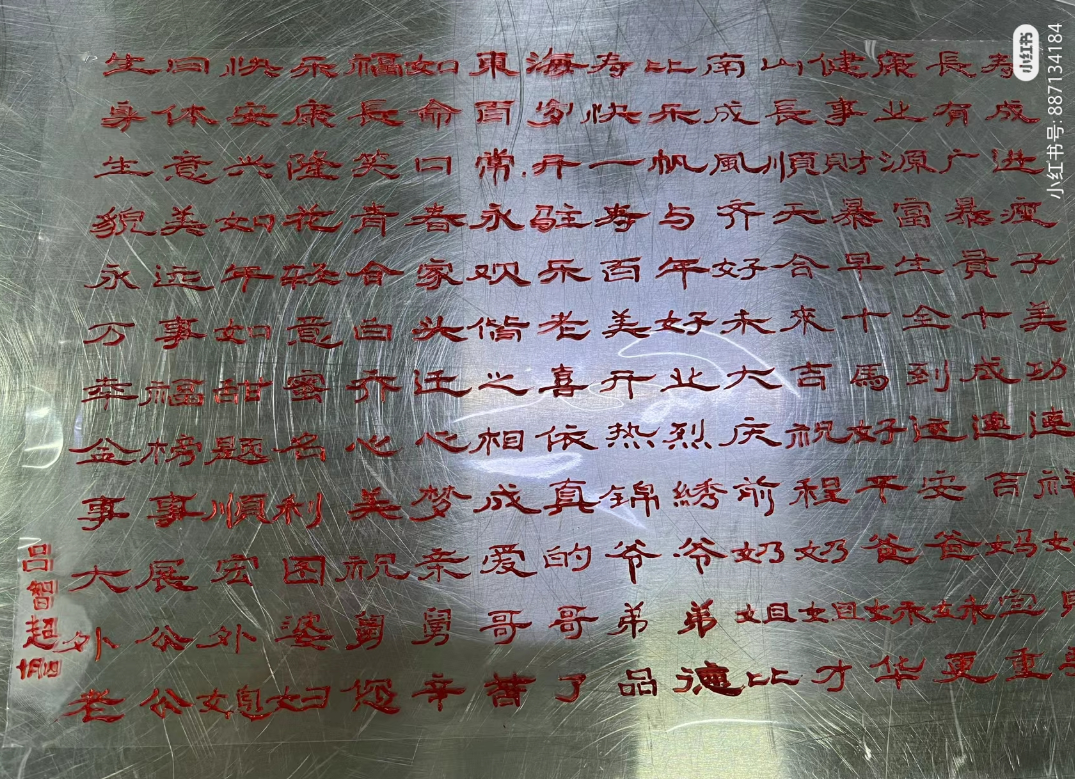 生日快乐福如東海寿比南山健康長寿
身体安康長命百岁快乐成長事业有成
生意兴隆笑口常开一帆風順財源广进
貌美如花青春永驻寿与齐天暴富暴瘦
永远年轻合家欢乐百年好合早生貴子
万事如意白头偕老美好未來十全十美
幸福甜蜜乔迁之喜开业大吉馬到成功
金榜题名心心相依热烈庆祝好运連連
事事順利美梦成真锦綉前程平安吉祥
大展宏图祝亲爱的爷爷奶奶爸爸妈
外公外婆舅舅哥哥弟弟姐姐妹妹宝
老公媳妇您辛苦了品德比才华更重
吕智超
小红书
小红书号: 887134184